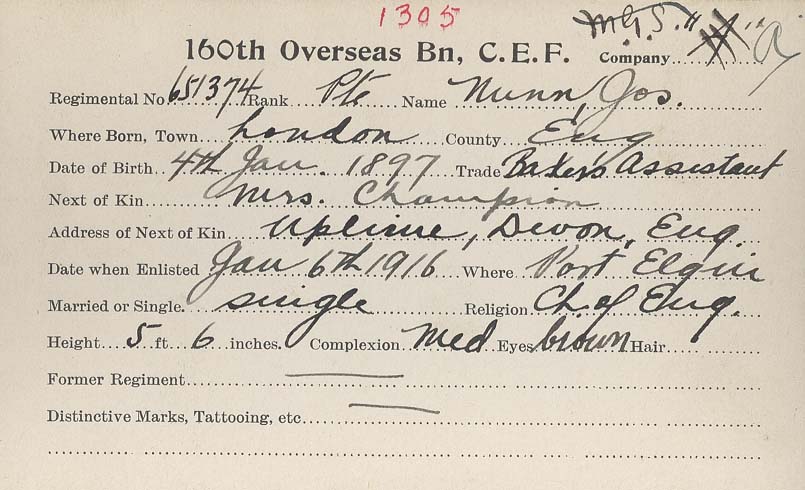 1305
160th Overseas Bn, C.E.F. Company
Regimental No 651374 Rank Pte Name Nunn, Jos.
Where Born, Town London County Eng
Date of Birth 4th Jan. 1897 Trade Baker's Assistant
Next of Kin Mrs. Champion
Address of Next of Kin Uplime, Devon, Eng.
Date when Enlisted Jan 6th 1916 Where Port Elgin
Married or Single. single Religion Ch. of Eng.
Height 5 ft. 6 inches. Complexion Med Eyes brown Hair
Former Regiment
Distinctive Marks, Tattooing, etc